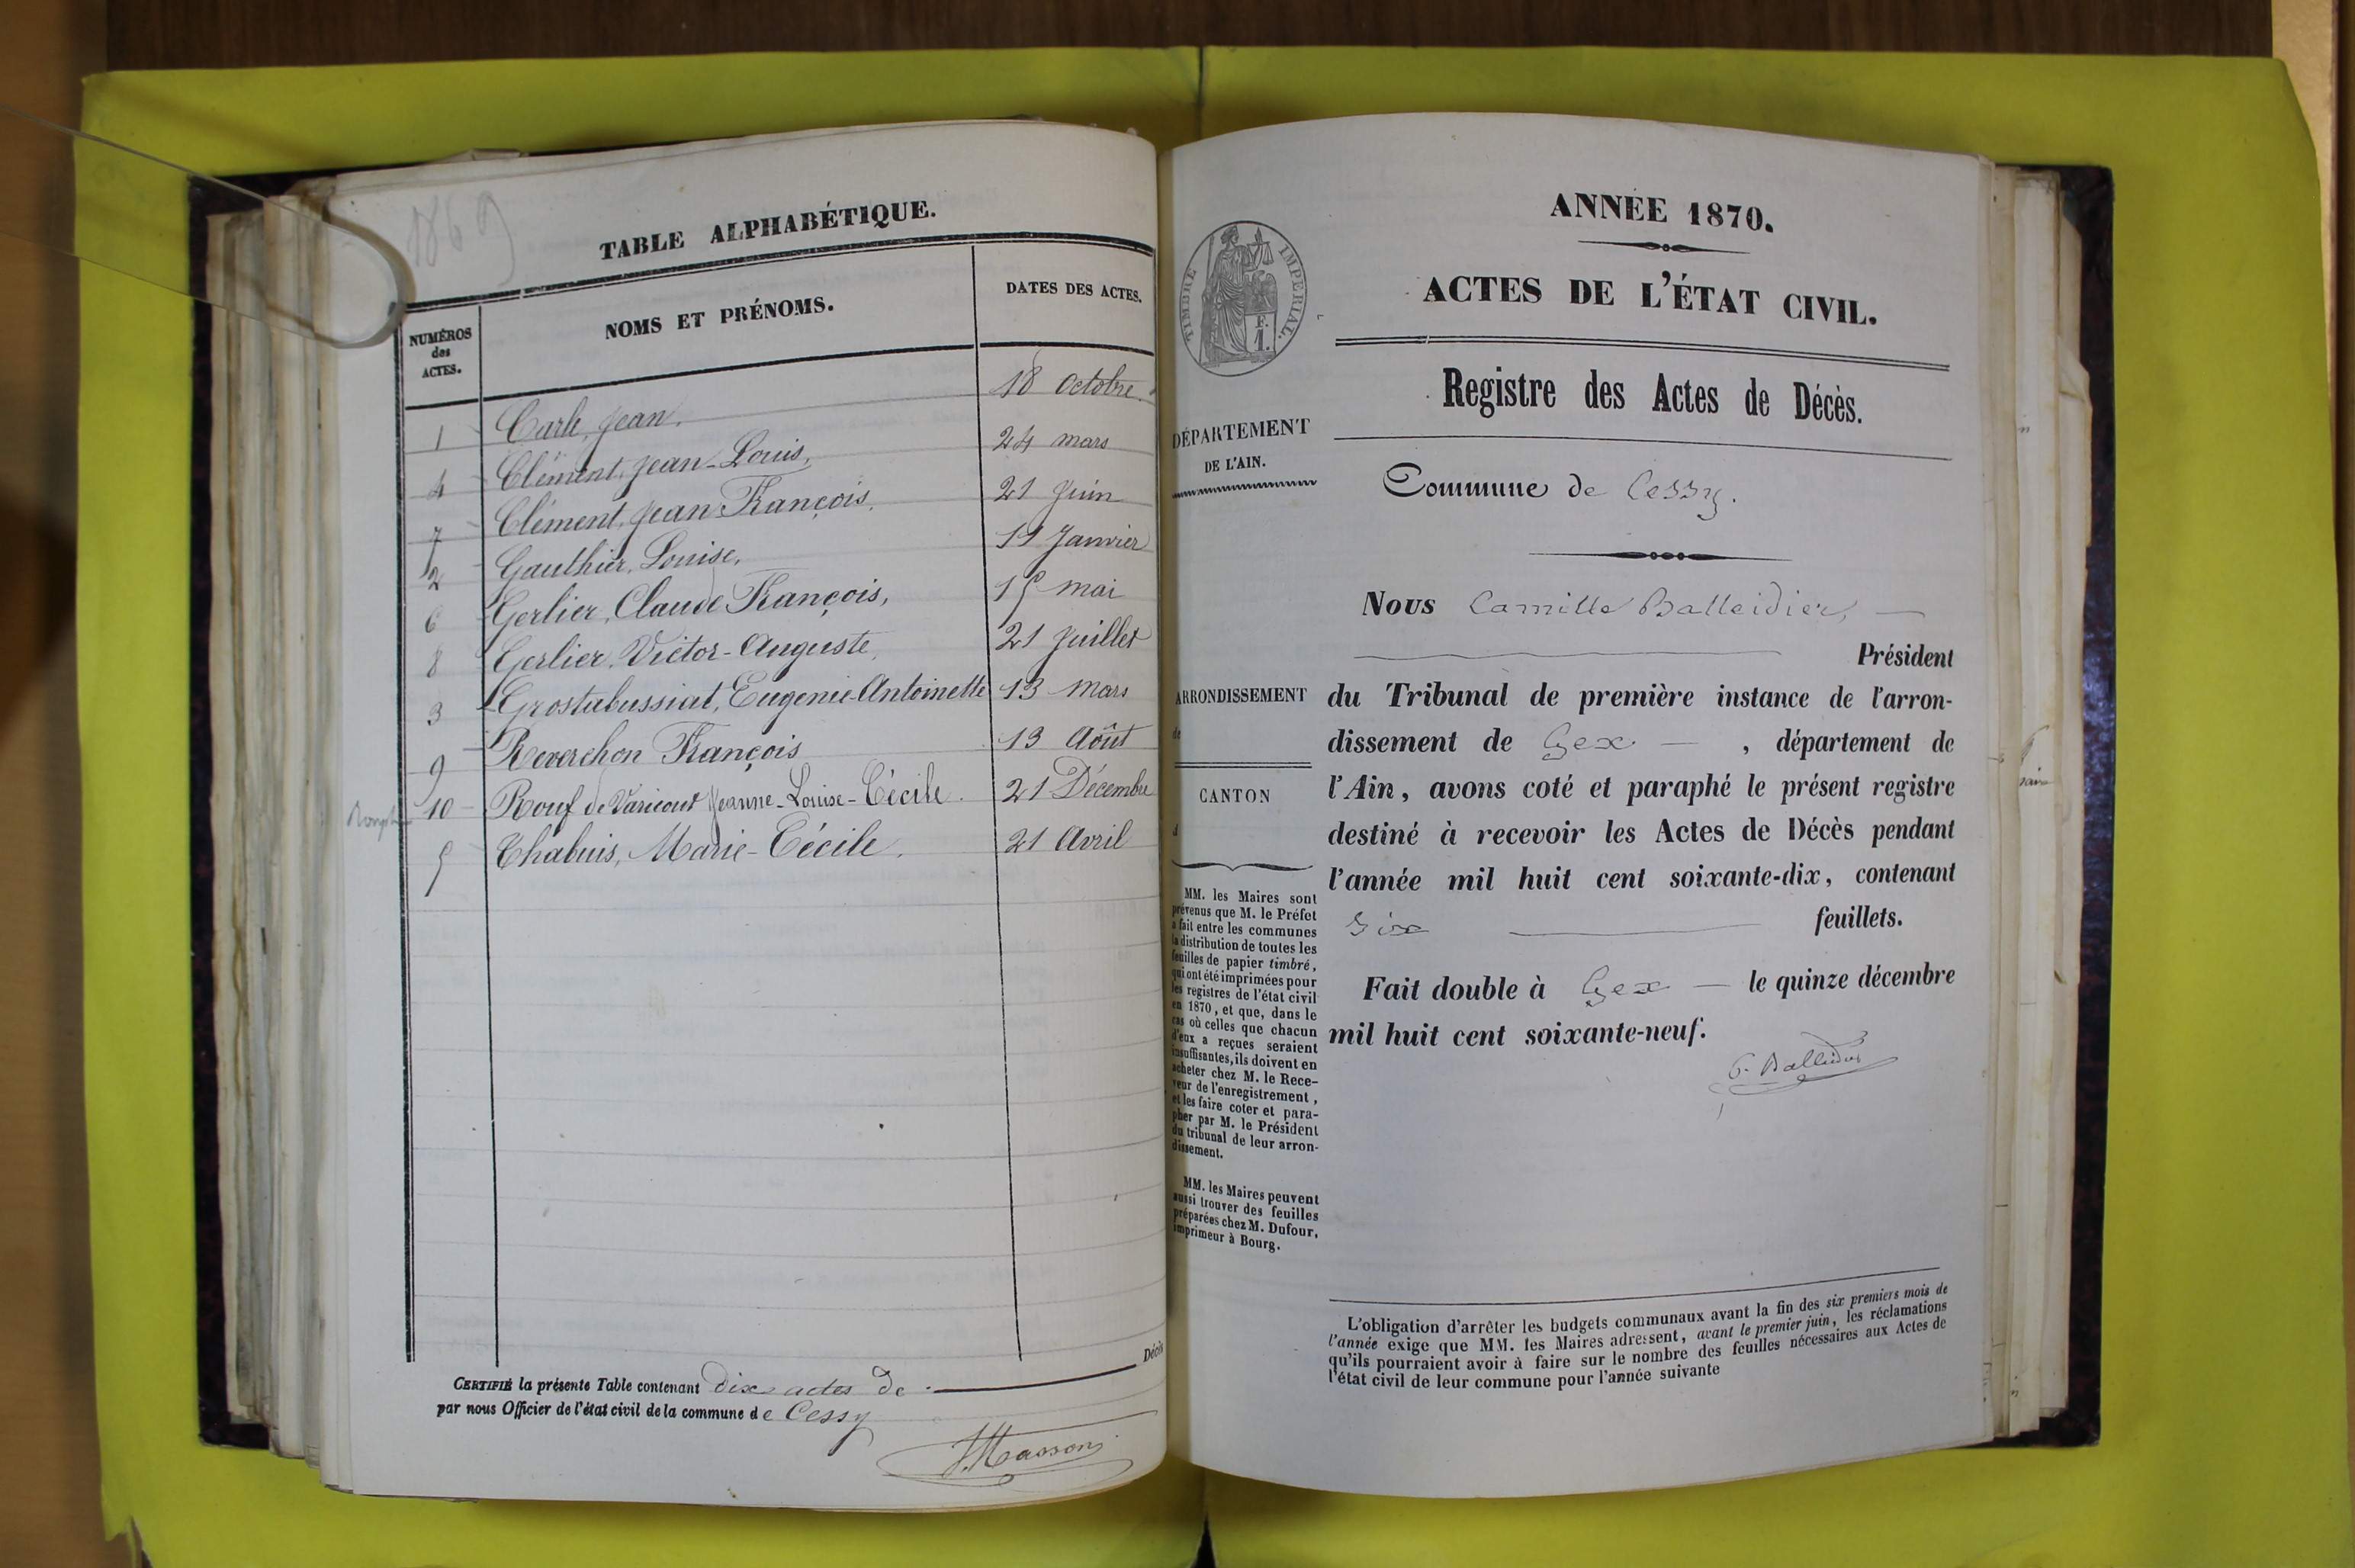 1869
TABLE ALPHABÉTIQUE.
NUMÉROS
des
ACTES.
NOMS ET PRÉNOMS.
DATES DES ACTES.
1 Carle, Jean, 18 Octobre.
4 Clément, Jean-Louis, 24 mars
7 Clément, Jean François, 21 Juin
2 Gauthier, Louise, 11 Janvier
6 Gerlier, Claude François, 15 mai
8 Gerlier, Victor-Auguste, 21 Juillet
3 Grostabussiat, Eugenie-Antoinette 13 Mars
9 Reverchon François 13 Août
10 Rouf de Varicourt Jeanne-Louise-Cécile. 21 Décembre
5 Chabuis, Marie-Cécile, 21 Avril
CERTIFIÉ la présente Table contenant dix actes de Décès
par nous Officier de l'état civil de la commune de Cessy
J. Masson
ANNÉE 1870.
TIMBRE IMPÉRIAL.
F.
1.
ACTES DE L'ÉTAT CIVIL.
Registre des Actes de Décès.
DÉPARTEMENT
DE L'AIN.
Commune de Cessy.
ARRONDISSEMENT
de
CANTON
d
MM. les Maires sont
prévenus que M. le Préfet
a fait entre les communes
la distribution de toutes les
feuilles de papier timbré,
qui ont été imprimées pour
les registres de l'état civil
en 1870, et que, dans le
cas où celles que chacun
d'eux a reçues seraient
insuffisantes, ils doivent en
acheter chez M. le Rece-
veur de l'enregistrement,
et les faire coter et para-
pher par M. le Président
du tribunal de leur arron-
dissement.
MM. les Maires peuvent
aussi trouver des feuilles
préparées chez M. Dufour,
imprimeur à Bourg.
Nous Camille Balleidier,
Président
du Tribunal de première instance de l'arron-
dissement de Gex , département de
l'Ain, avons coté et paraphé le présent registre
destiné à recevoir les Actes de Décès pendant
l'année mil huit cent soixante-dix, contenant
Six feuillets.
Fait double à Gex le quinze décembre
mil huit cent soixante-neuf.
C. Balleidier
L'obligation d'arrêter les budgets communaux avant la fin des six premiers mois de
l'année exige que MM. les Maires adressent, avant le premier juin, les réclamations
qu'ils pourraient avoir à faire sur le nombre des feuilles nécessaires aux Actes de
l'état civil de leur commune pour l'année suivante